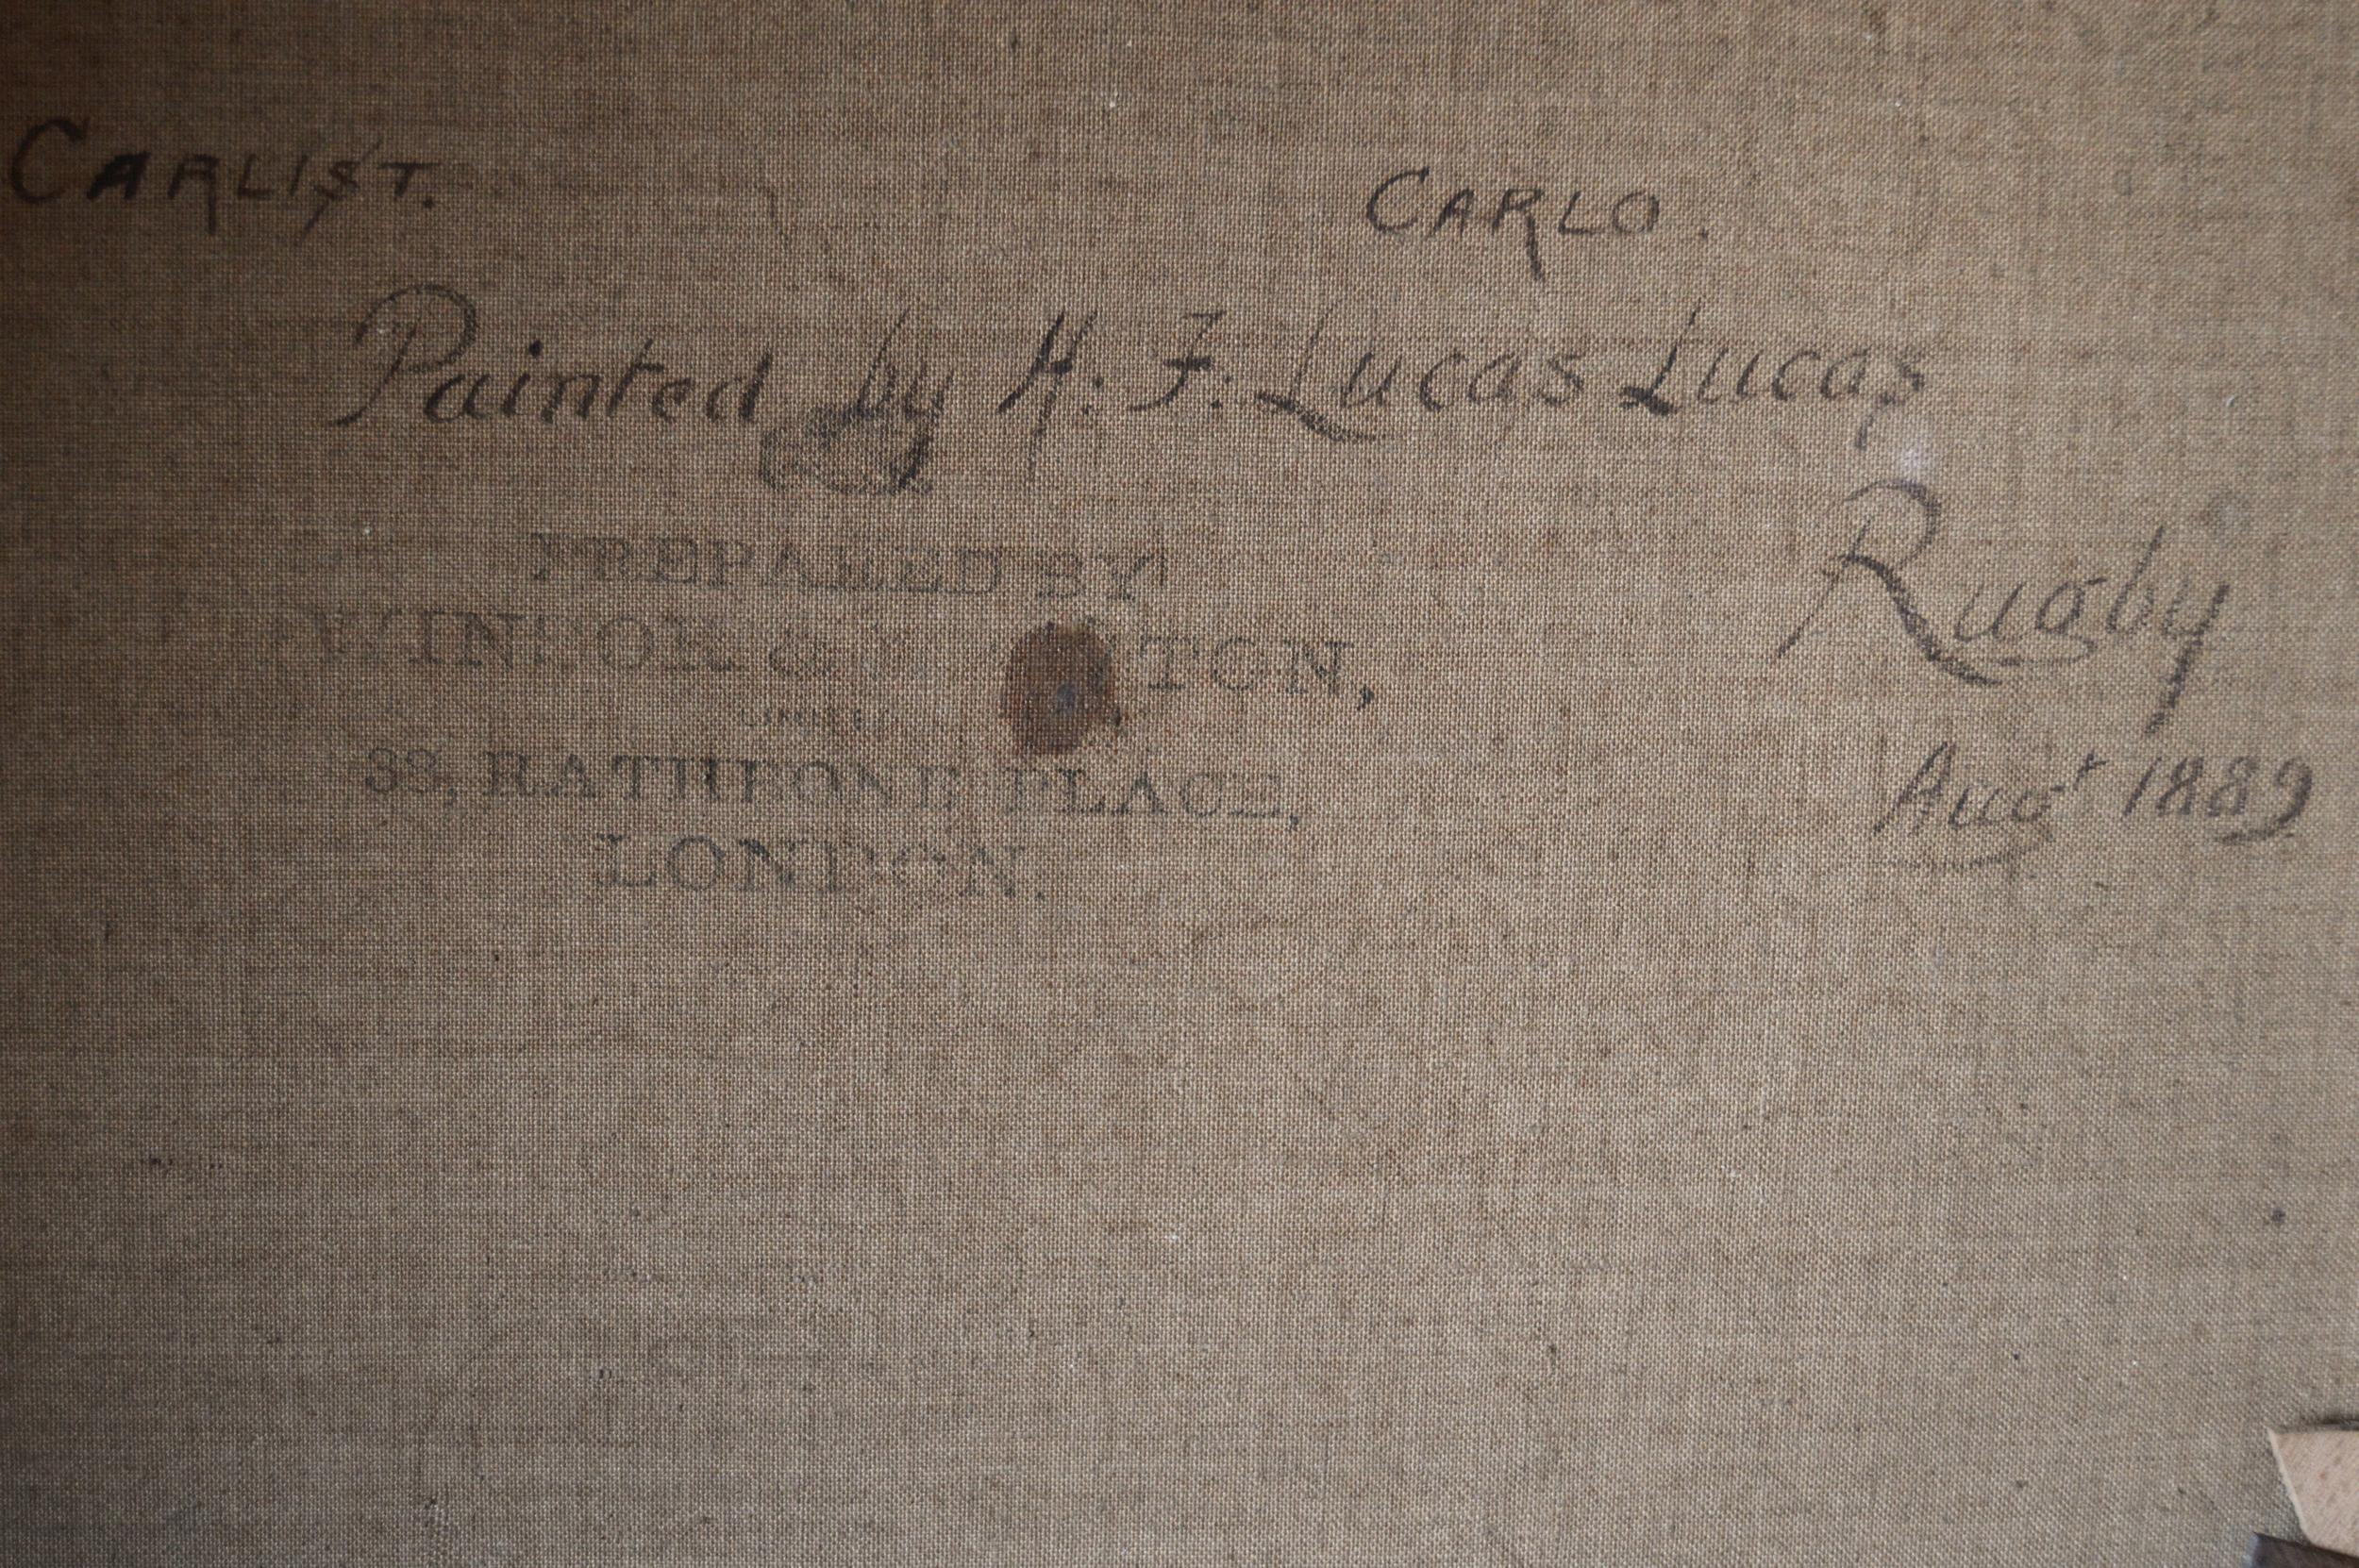 CARLIST. CARLO.
Painted by H. F. Lucas Lucas
Rugby
Augt 1889
PREPARED BY
WINSOR & NEWTON,
38, RATHBONE PLACE,
LONDON.